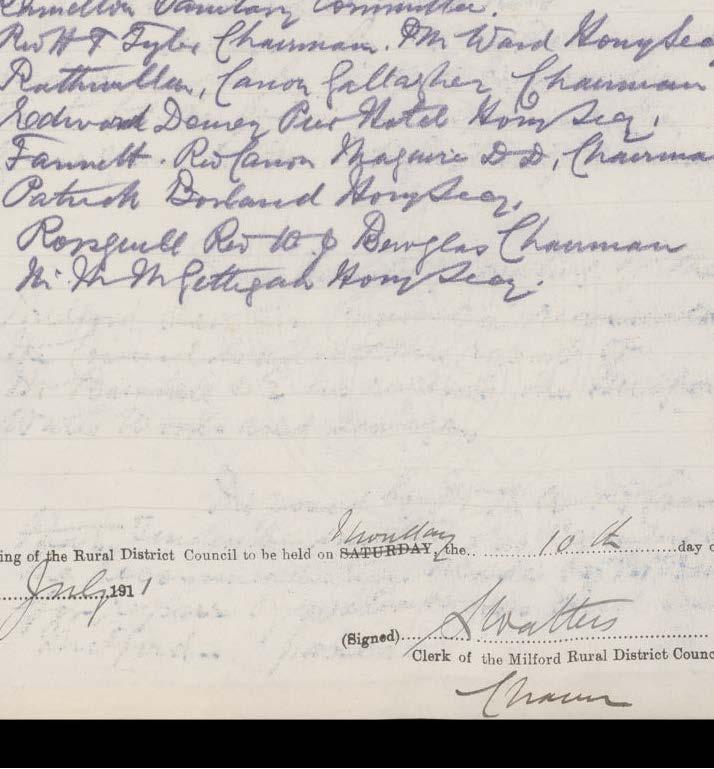 Sanitary Committee.
Rev H T Tyler Chairman. P M Ward Hony Sec
Rathmullan, Canon Gallagher Chairman
Edward Deeney Pier Hotel Hony Secy.
Fannett. Rev Canon Maguire D D, Chairma
Patrick Borland Hony Secy,
Rosguill Rev Chairman
McGettigan Hony Secy.
ing of the Rural District Council to be held on SATURDAY, Monday the 10th day o
July 1911
(Signed) S Watters
Clerk of the Milford Rural District Counc